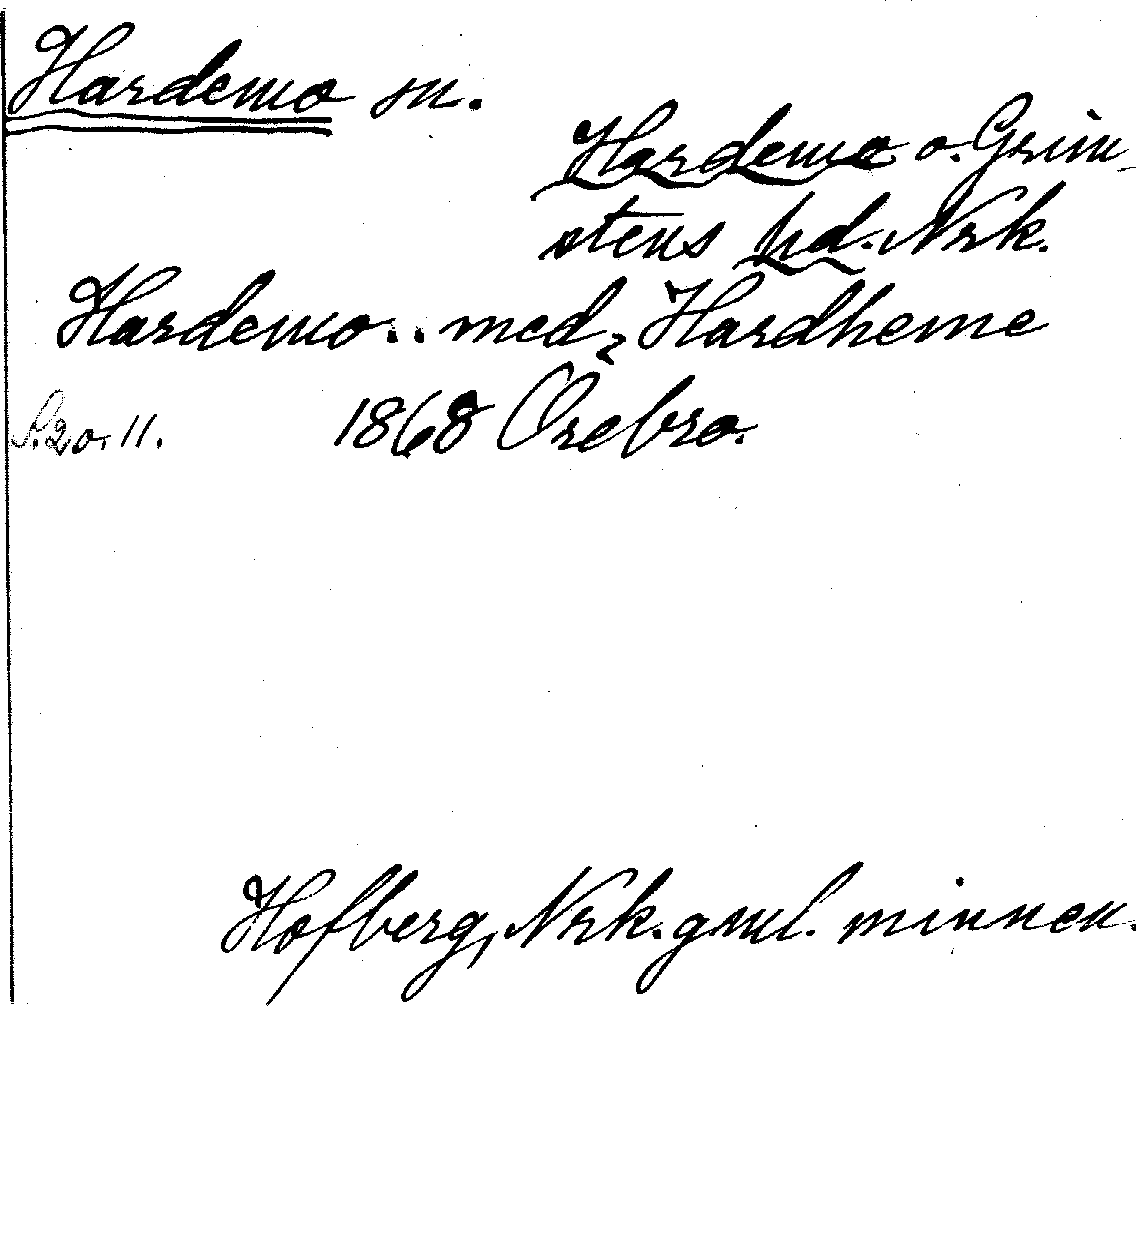 Hardemo sn.
Hardemo o. Grim-
stens hd. Nrk.
Hardemo .. med Hardheme
S. 2 o. 11. 1868 Örebro.
Hofberg, Nrk. gml. minnen.